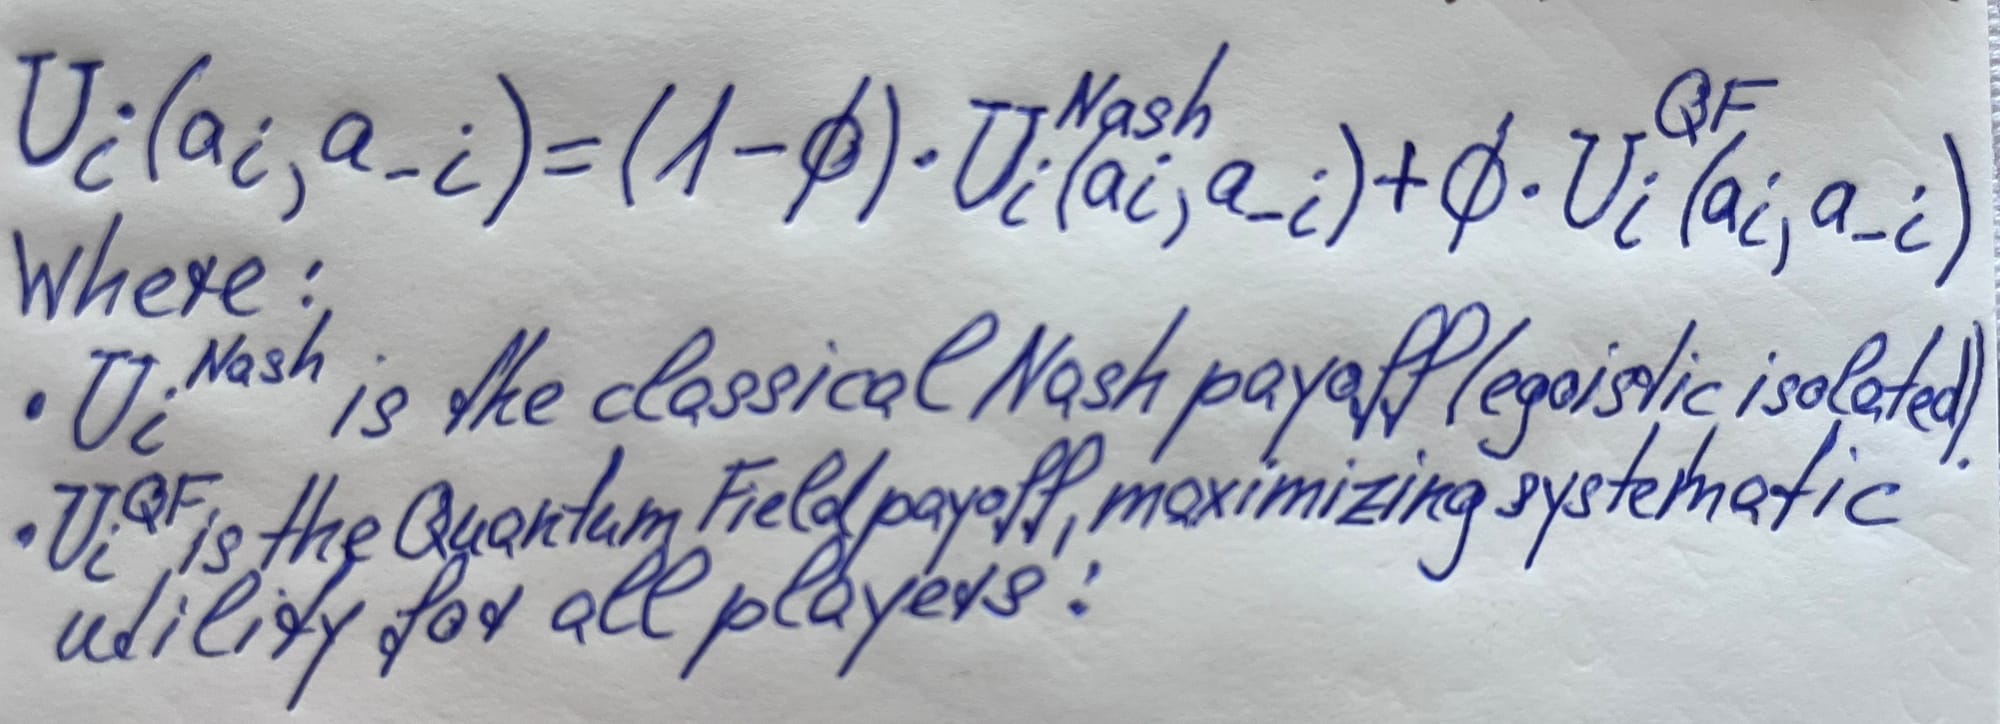 Uᵢ(aᵢ, a₋ᵢ) = (1 - ϕ) · Uᵢᴺᵃˢʰ(aᵢ, a₋ᵢ) + ϕ · Uᵢ^QF(aᵢ, a₋ᵢ)
Where:
· Uᵢᴺᵃˢʰ is the classical Nash payoff (egoistic isolated).
· Uᵢ^QF is the Quantum Field payoff, maximizing systematic
utility for all players: